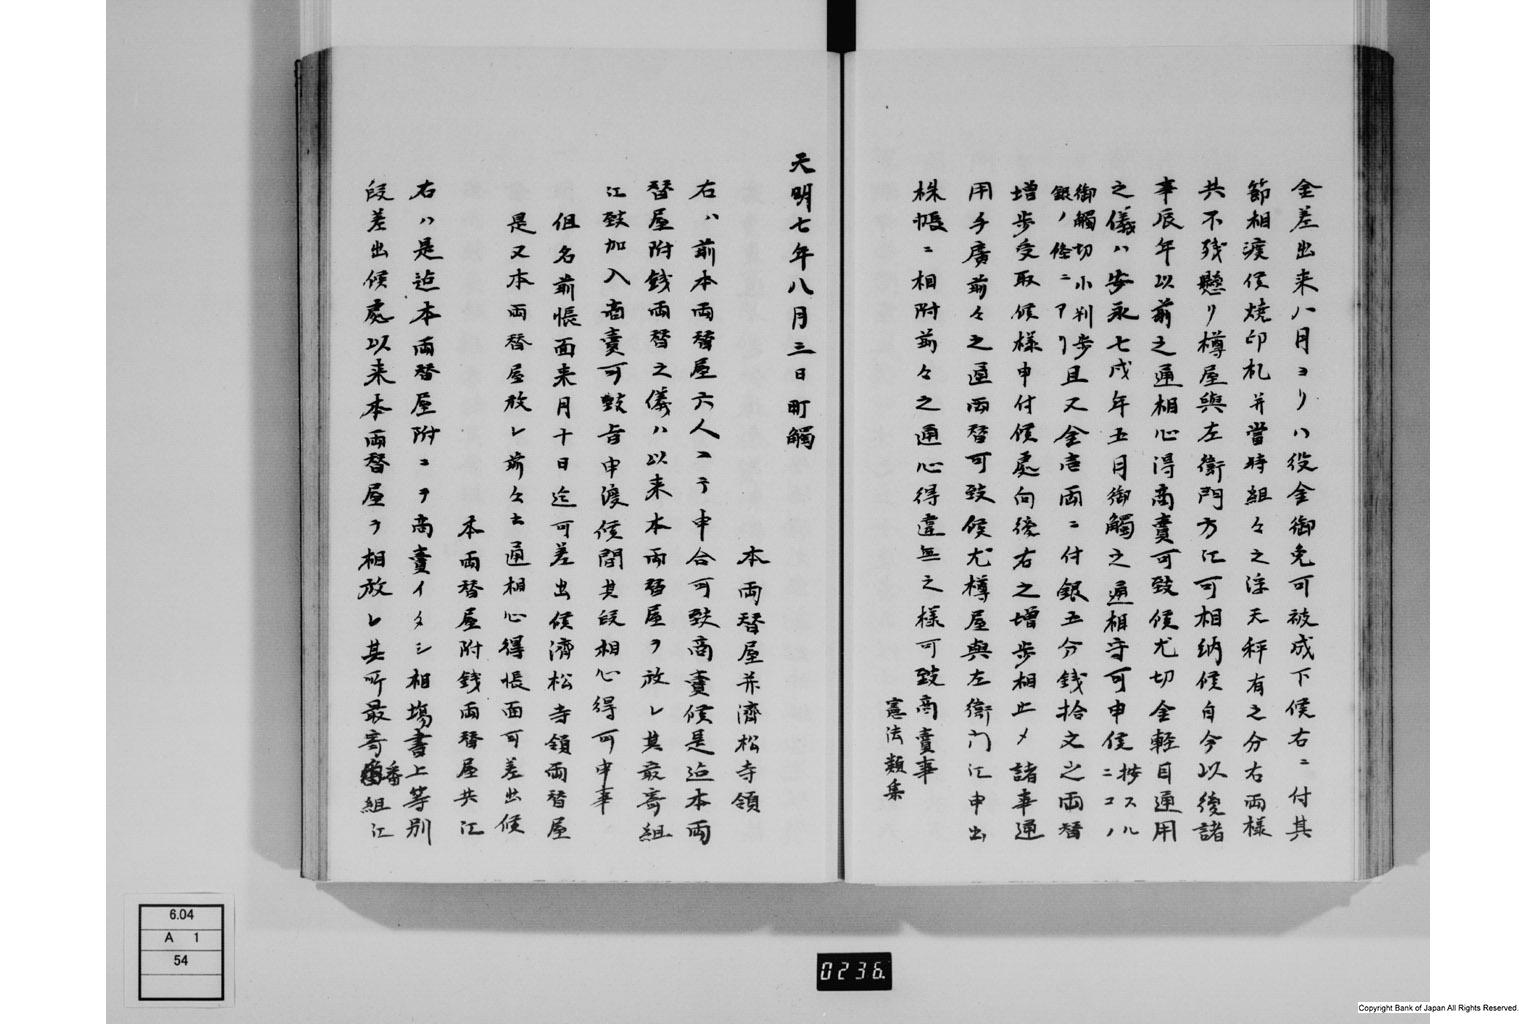 金差出来八月ヨリハ役金御免可被成下候右ニ付其
節相渡候焼印札并當時組々之浮天秤有之分右両様
共不残懸リ樽屋與左衛門方江可相納候自今以後諸
事辰年以前之通相心得商賣可致候尤切金軽目通用
之儀ハ安永七戌年五月御觸之通相守可申候
拶スル
ニコノ
御觸切小判歩
銀ノ條ニアリ
且又金壱両ニ付銀五分銭拾文之両替
増歩受取候様申付候處向後右之増歩相止メ諸事通
用手廣前々之通両替可致候尤樽屋與左衛門江申出
株帳ニ相附前々之通心得違無之様可致商賣事
憲法類集
天明七年八月三日町觸
本両替屋并濟松寺領
右ハ前本両替屋六人ニテ申合可致商賣候是迠本両
替屋附銭両替之儀ハ以来本両替屋ヲ放レ其最寄組
江致加入商賣可致旨申渡候間其段相心得可申事
但名前帳面来月十日迠可差出候濟松寺領両替屋
是又本両替屋放レ前々之通相心得帳面可差出候
本両替屋附銭両替屋共江
右ハ是迠本両替屋附ニテ商賣イタシ相場書上等別
段差出候處以来本両替屋ヲ相放レ其所最寄番組江
6.04
A 1
54
0236.
Copyright Bank of Japan All Rights Reserved.